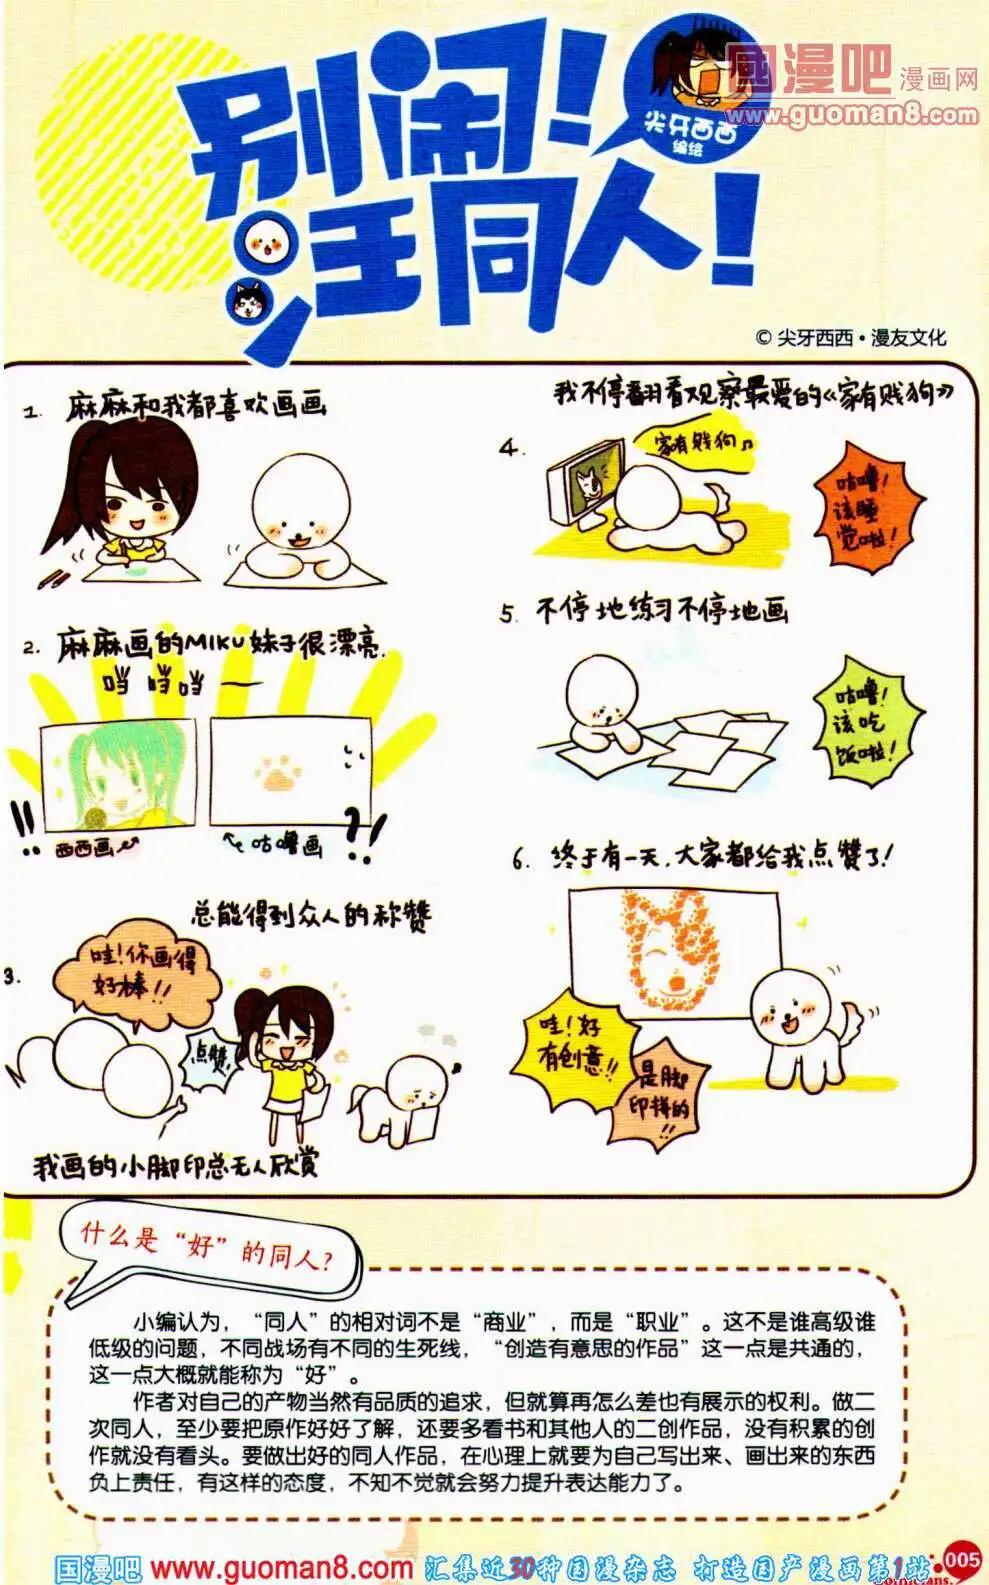 别闹！
汪同人！
尖牙西西
编绘
国漫吧 漫画网
www.guoman8.com
© 尖牙西西·漫友文化
1. 麻麻和我都喜欢画画
2. 麻麻画的MIKU妹子很漂亮.
噹 噹 噹 —
!!
西西画
咕噜画
?!
3.
总能得到众人的称赞
哇!你画得
好棒!!
点赞!
我画的小脚印总无人欣赏
我不停翻看观察最爱的《家有贱狗》
4.
家有贱狗♫
咕噜!
该睡
觉啦!
5. 不停地练习不停地画
咕噜!
该吃
饭啦!
6. 终于有一天,大家都给我点赞了!
哇!好
有创意!!
是脚
印拼的
!!
什么是“好”的同人?
小编认为，“同人”的相对词不是“商业”，而是“职业”。这不是谁高级谁
低级的问题，不同战场有不同的生死线，“创造有意思的作品”这一点是共通的，
这一点大概就能称为“好”。
作者对自己的产物当然有品质的追求，但就算再怎么差也有展示的权利。做二
次同人，至少要把原作好好了解，还要多看书和其他人的二创作品，没有积累的创
作就没有看头。要做出好的同人作品，在心理上就要为自己写出来、画出来的东西
负上责任，有这样的态度，不知不觉就会努力提升表达能力了。
国漫吧 www.guoman8.com 汇集近30种国漫杂志 打造国产漫画第1站
005